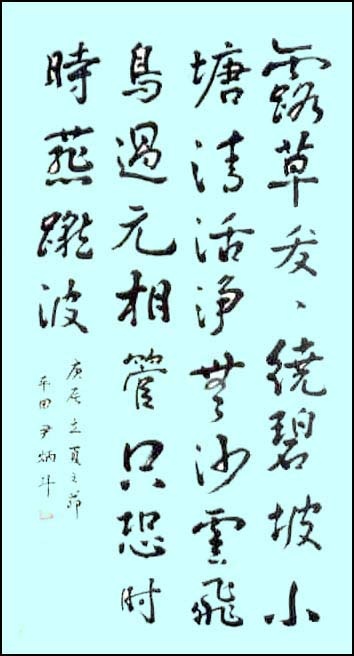 露草夭〻繞碧坡小
塘清活淨無沙雲飛
鳥過元相管只恐时
時燕蹴波
庚辰立夏之節
平田尹炳斗